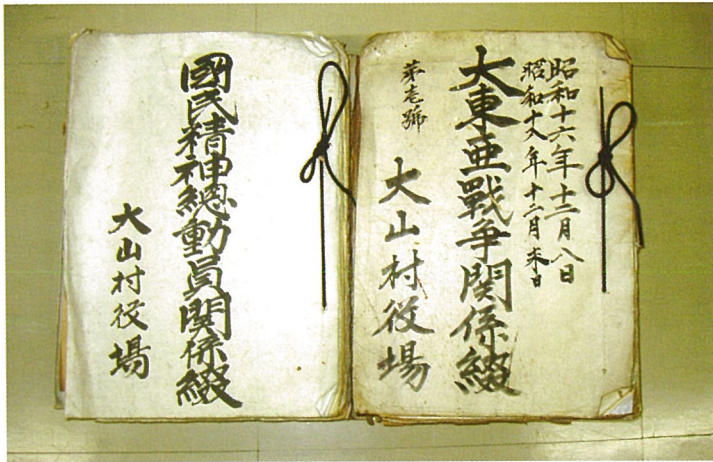 昭和十六年十二月八日
昭和十八年十二月末日
大東亜戦争関係綴
第壱號
大山村役場
國民精神総動員関係綴
大山村役場